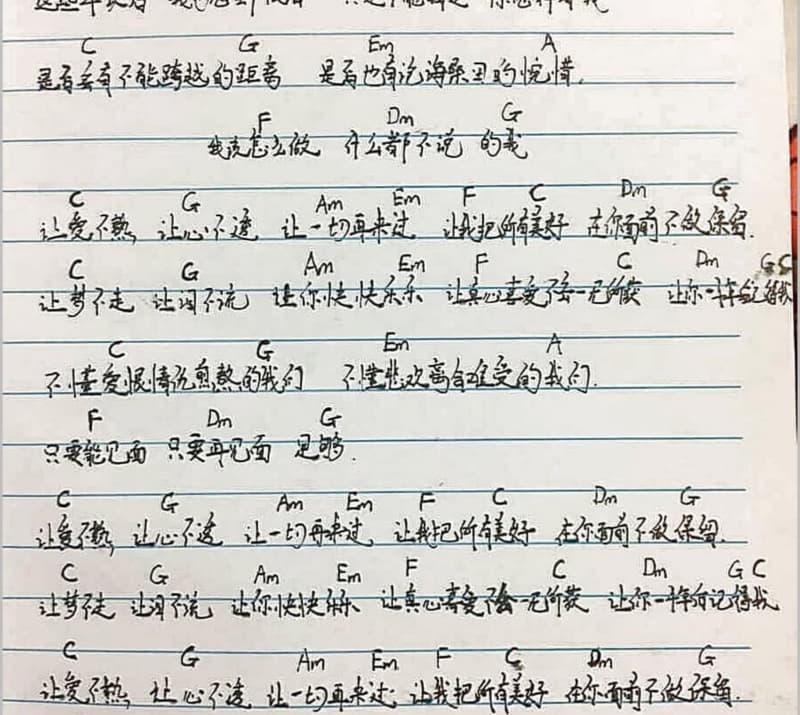 C G Em A
是否会有不能跨越的距离 是否也有沧海桑田的惋惜.
F Dm G
我该怎么做 什么都不说 的我
C G Am Em F C Dm G
让爱不熟, 让心不透 让一切再来过 让我把所有美好 在你面前不做保留.
C G Am Em F C Dm G C
让梦不走 让泪不流 让你快快乐乐 让真心喜爱不会一无所获 让你一千年后记得我
C G Em A
不懂爱恨情仇煎熬的我们 不懂悲欢离合难受的我们.
F Dm G
只要能见面 只要再见面 足够.
C G Am Em F C Dm G
让爱不熟, 让心不透 让一切再来过, 让我把所有美好 在你面前不做保留.
C G Am Em F C Dm G C
让梦不走 让泪不流 让你快快乐乐 让真心喜爱不会一无所获 让你一千年后记得我
C G Am Em F C Dm G
让爱不熟, 让心不透 让一切再来过, 让我把所有美好 在你面前不做保留.